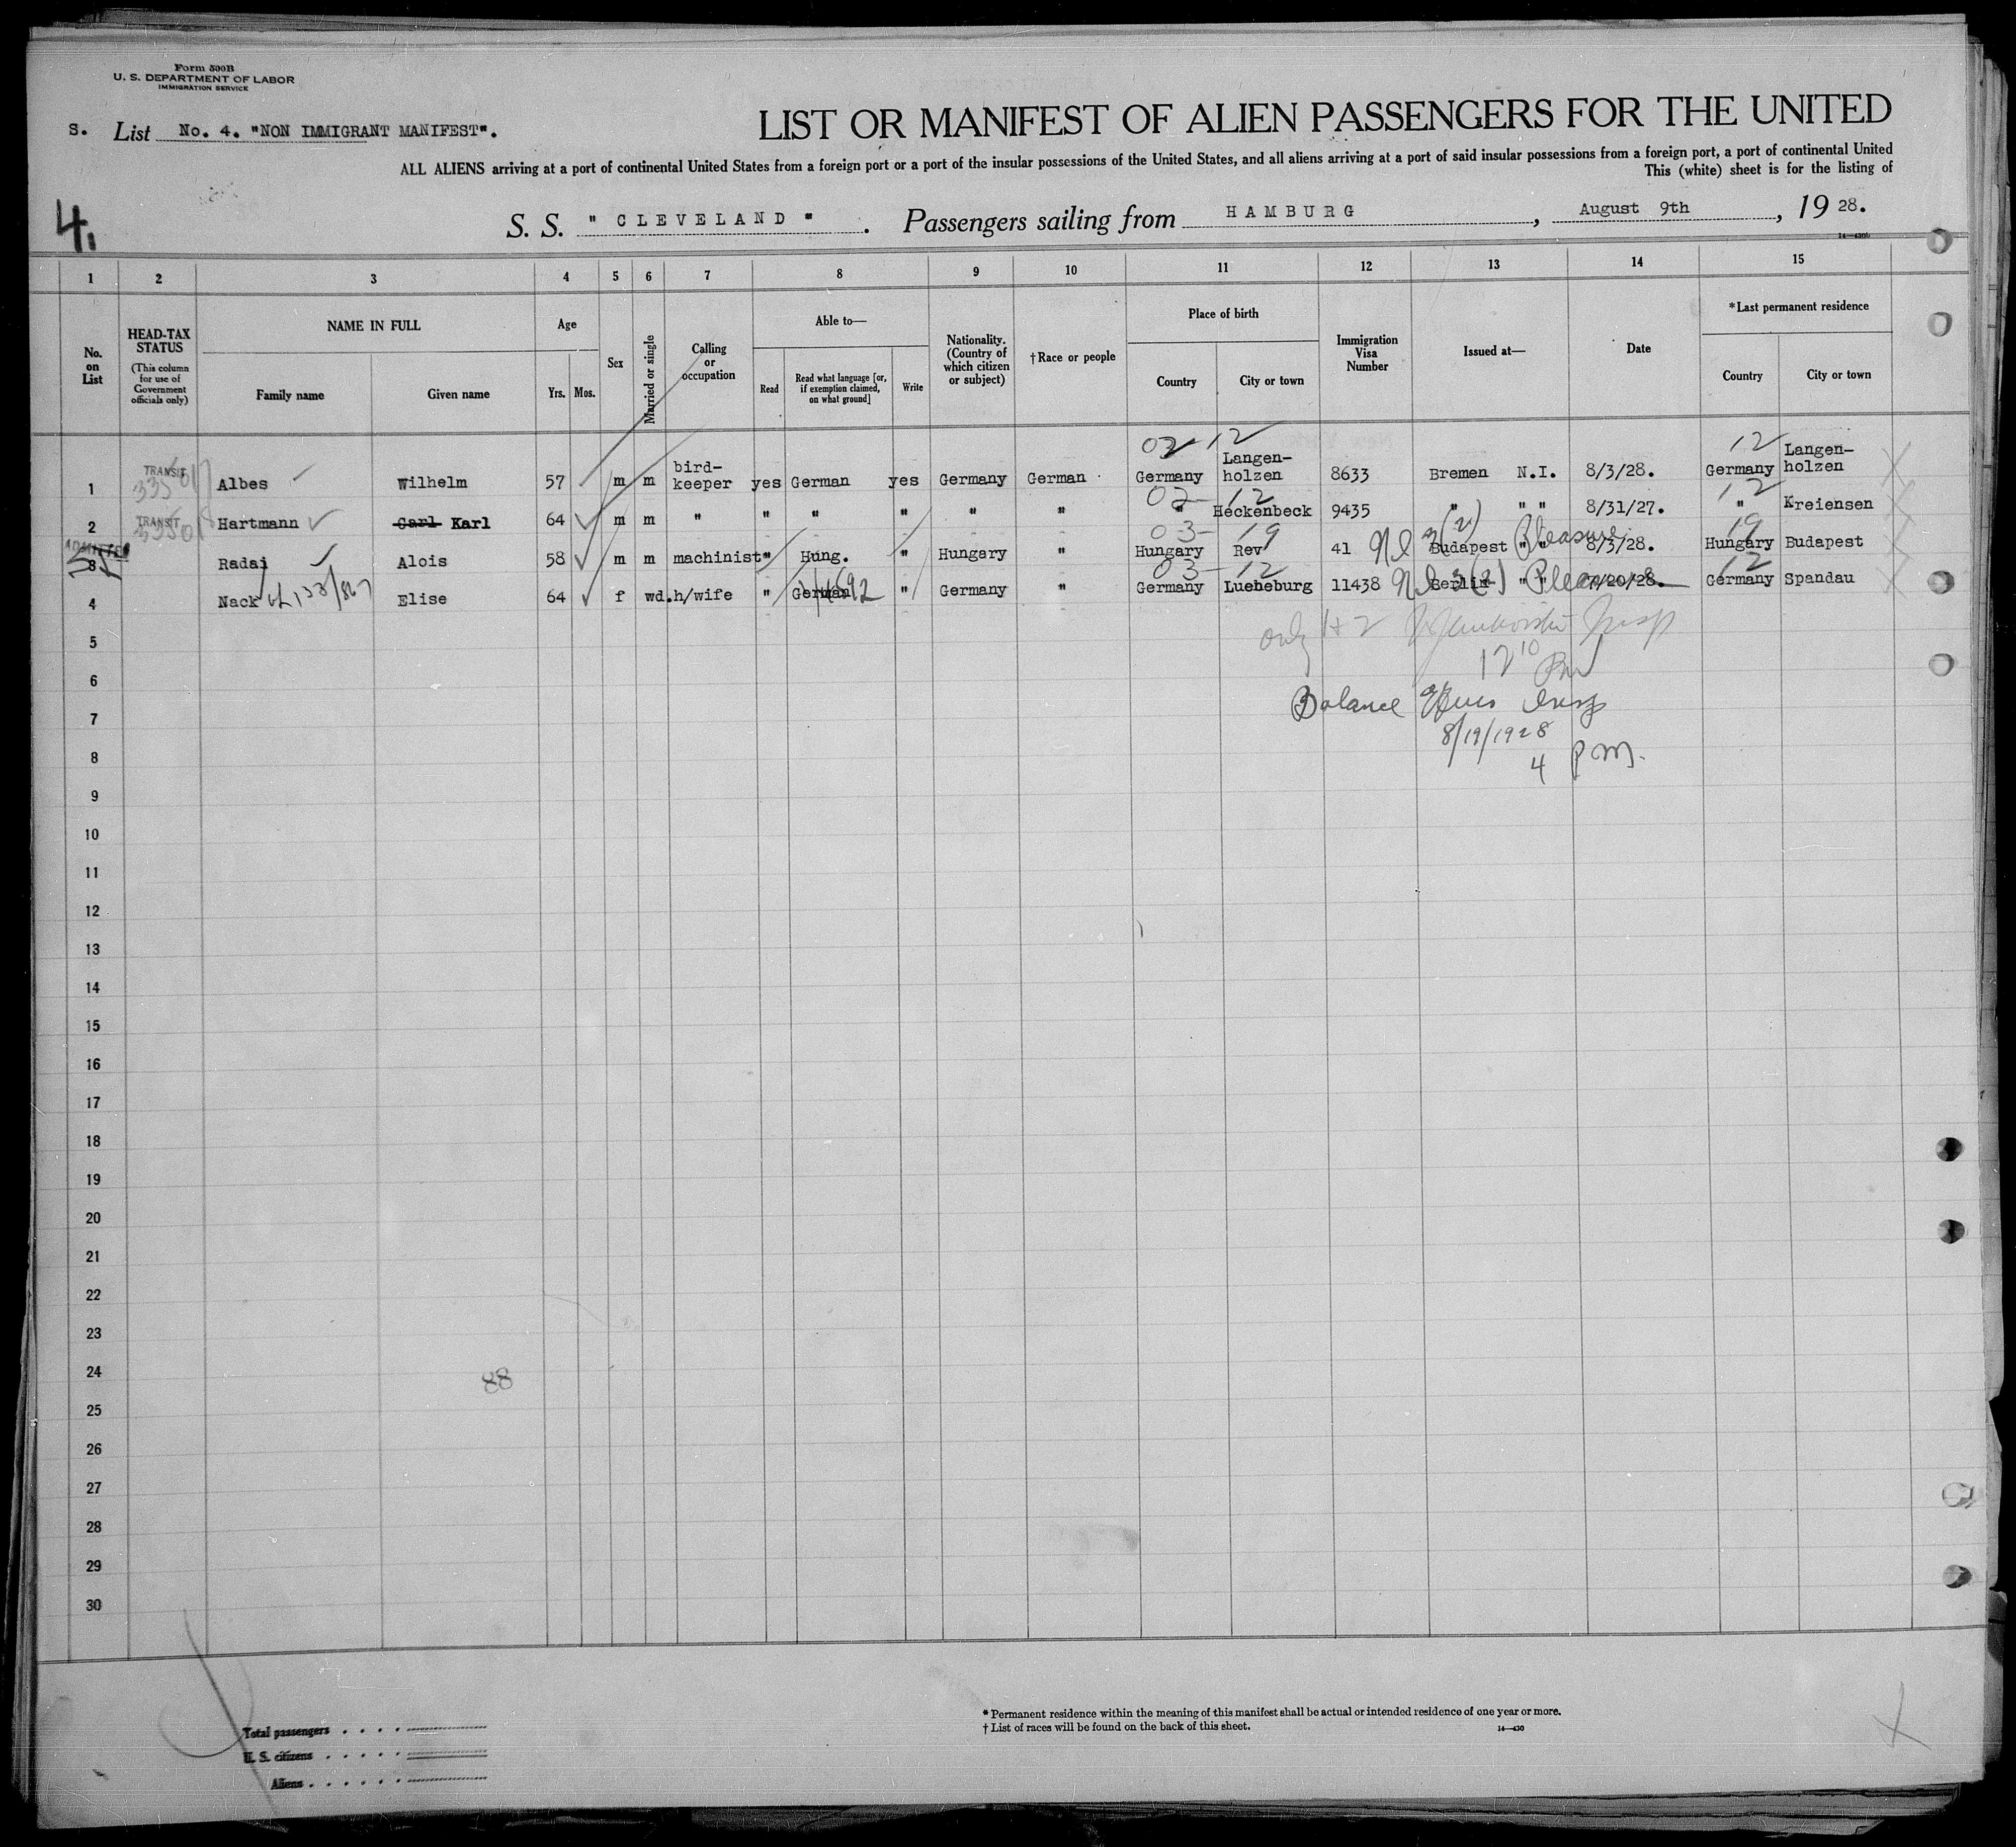 Form 500B
U. S. DEPARTMENT OF LABOR
IMMIGRATION SERVICE
S. List No. 4. "NON IMMIGRANT MANIFEST".
LIST OR MANIFEST OF ALIEN PASSENGERS FOR THE UNITED
ALL ALIENS arriving at a port of continental United States from a foreign port or a port of the insular possessions of the United States, and all aliens arriving at a port of said insular possessions from a foreign port, a port of continental United
This (white) sheet is for the listing of
4.
S. S. " CLEVELAND " . Passengers sailing from HAMBURG , August 9th , 19 28.
14—430b
1 2 3 4 5 6 7 8 9 10 11 12 13 14 15
No. on List
HEAD-TAX STATUS
(This column for use of Government officials only)
NAME IN FULL
Family name Given name
Age
Yrs. Mos.
Sex
Married or single
Calling or occupation
Able to—
Read
Read what language [or, if exemption claimed, on what ground]
Write
Nationality. (Country of which citizen or subject)
†Race or people
Place of birth
Country City or town
Immigration Visa Number
Issued at—
Date
*Last permanent residence
Country City or town
02 12 12
1 TRANSIT Albes Wilhelm 57 m m bird-keeper yes German yes Germany German Germany Langen-holzen 8633 Bremen N.I. 8/3/28. Germany Langen-holzen
02 12 12
2 TRANSIT Hartmann Carl Karl 64 m m " " " " " " " Heckenbeck 9435 " " " 8/31/27. " Kreiensen
03 19 19
3 ADMITTED Radai Alois 58 m m machinist " Hung. " Hungary " Hungary Rev 41 Budapest " " Pleasure 8/3/28. Hungary Budapest
03 12 12
4 Nack Elise 64 f wd. h/wife " German " Germany " Germany Lueneburg 11438 Berlin " " Pleasure 7/20/28. Germany Spandau
5 only 1+2 Insp
6 12 10 PM
7 Balance Insp
8/19/1928
8 4 P.M.
9
10
11
12
13
14
15
16
17
18
19
20
21
22
23
24 88
25
26
27
28
29
30
Total passengers
U. S. citizens
Aliens
* Permanent residence within the meaning of this manifest shall be actual or intended residence of one year or more.
† List of races will be found on the back of this sheet.
14—430